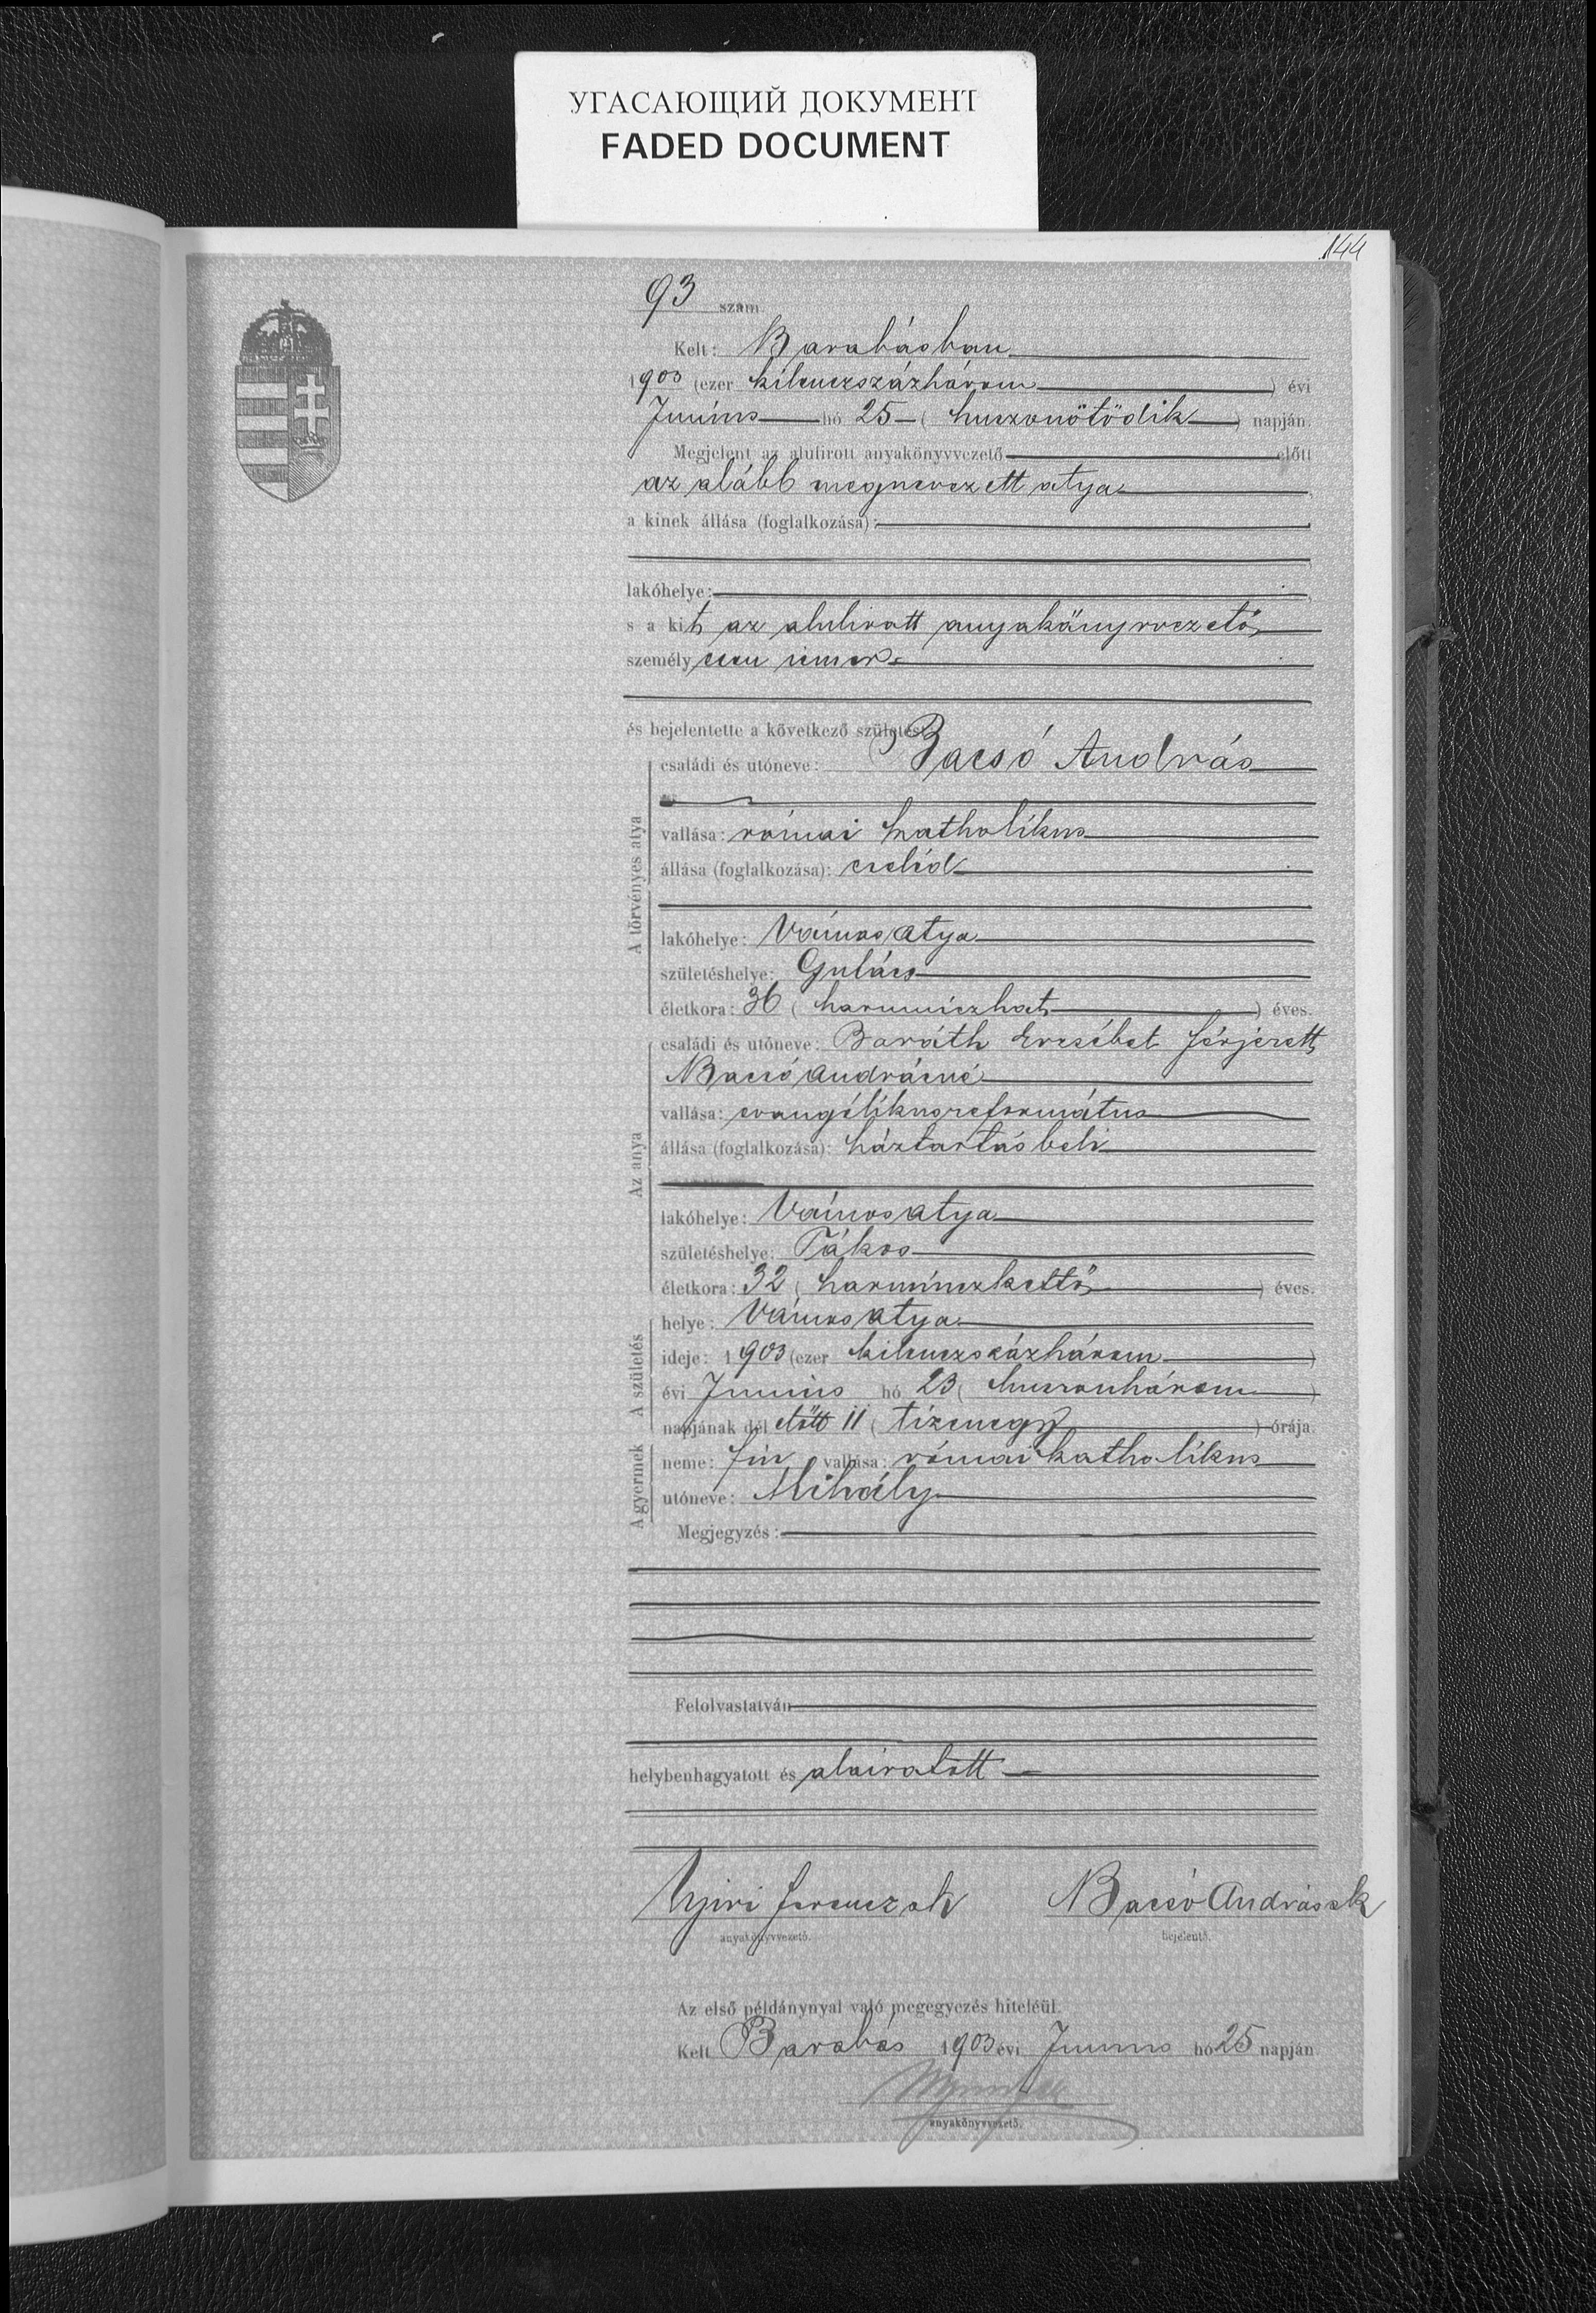 УГАСАЮЩИЙ ДОКУМЕНТ
FADED DOCUMENT
144
93 szám
Kelt: Barabásban
1903 (ezer kilenczszázhárom) évi
Junius hó 25 (huszonötödik) napján.
Megjelent az alulirott anyakönyvvezető előtt
az alább megnevezett atya
a kinek állása (foglalkozása):
lakóhelye:
s a kit az alulirott anyakönyvvezető
személyesen ismer
és bejelentette a következő születést
A törvényes atya
családi és utóneve: Bacsó András
vallása: római katholikus
állása (foglalkozása): cseléd
lakóhelye: Vámosatya
születéshelye: Gulács
életkora: 36 (harminczhat) éves.
Az anya
családi és utóneve: Baráth Erzsébet férjezett
Bacsó Andrásné
vallása: evangélikusreformátus
állása (foglalkozása): háztartásbeli
lakóhelye: Vámosatya
születéshelye: Tákos
életkora: 32 (harminczkettő) éves.
A születés
helye: Vámosatya
ideje: 1903 (ezer kilenczszázhárom)
évi Junius hó 23 (huszonhárom)
napjának dél előtt 11 (tizenegy) órája.
A gyermek
neme: fiu vallása: római katholikus
utóneve: Mihály
Megjegyzés:
Felolvastatván
helybenhagyatott és aláiratott
Nyiri Ferencz sk Bacsó András sk
anyakönyvvezető. bejelentő.
Az első példánynyal való megegyezés hiteléül.
Kelt Barabás 1903 évi Junius hó 25 napján
anyakönyvvezető.